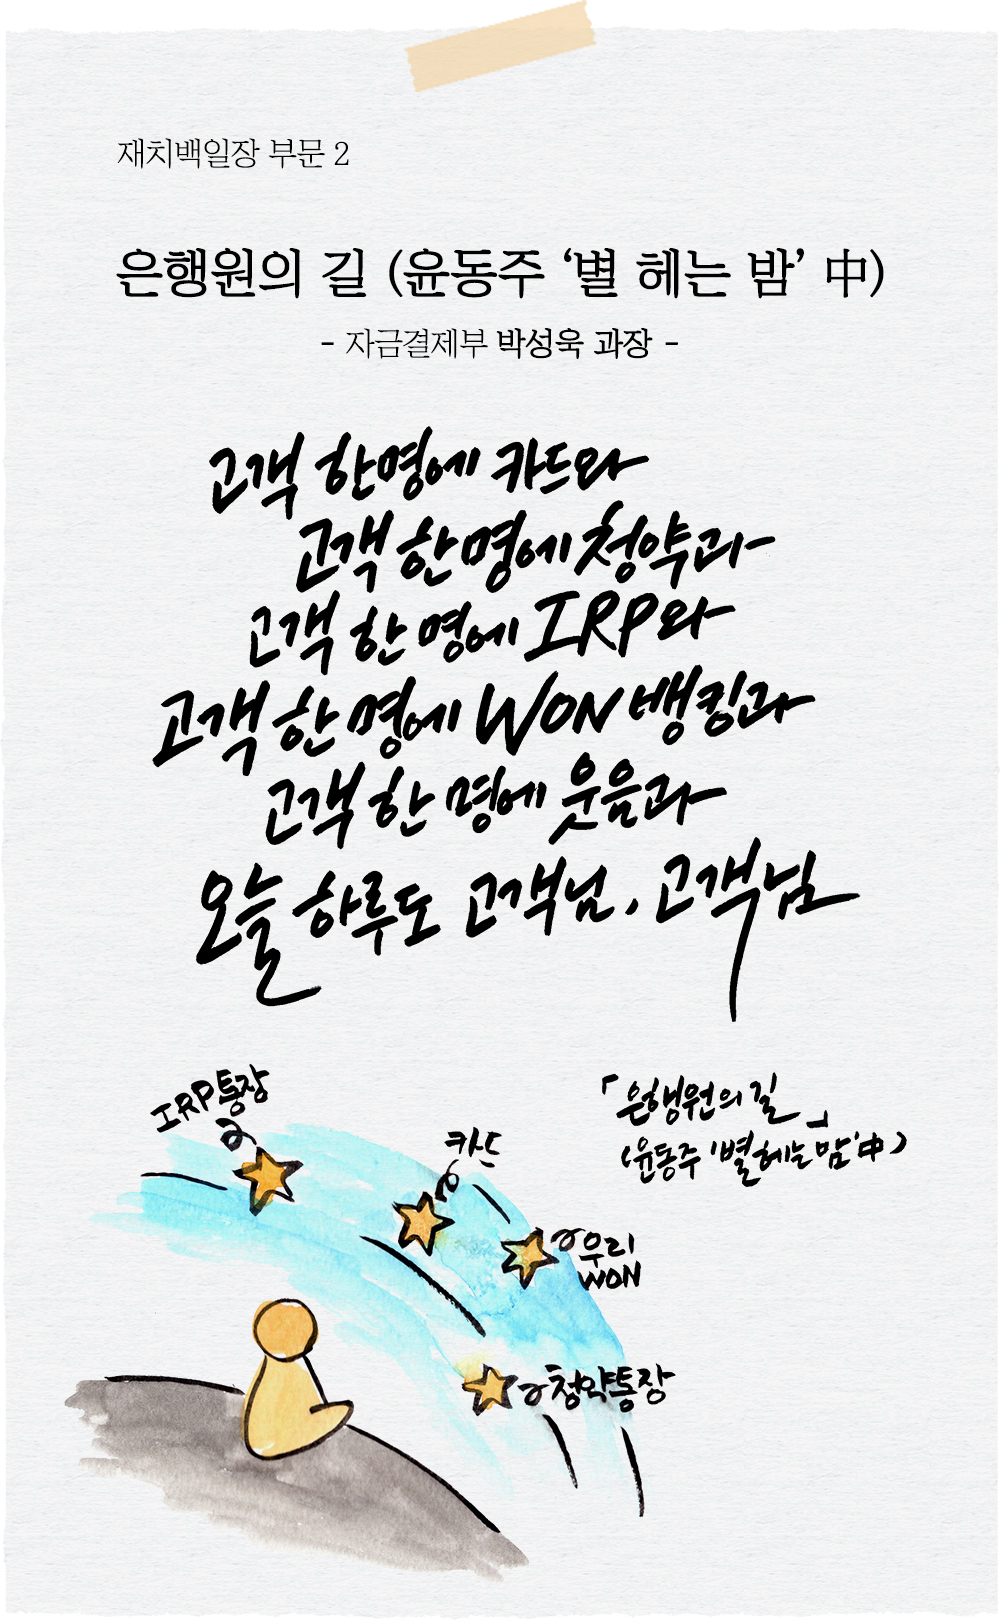 재치백일장 부문 2
은행원의 길 (윤동주 ‘별 헤는 밤’ 中)
- 자금결제부 박성욱 과장 -
고객 한명에 카드와
고객 한명에 청약과
고객 한 명에 IRP와
고객 한 명에 WON 뱅킹과
고객 한 명에 웃음과
오늘 하루도 고객님, 고객님
IRP통장
카드
우리
WON
청약통장
「은행원의 길」
(윤동주 '별 헤는 밤' 中)